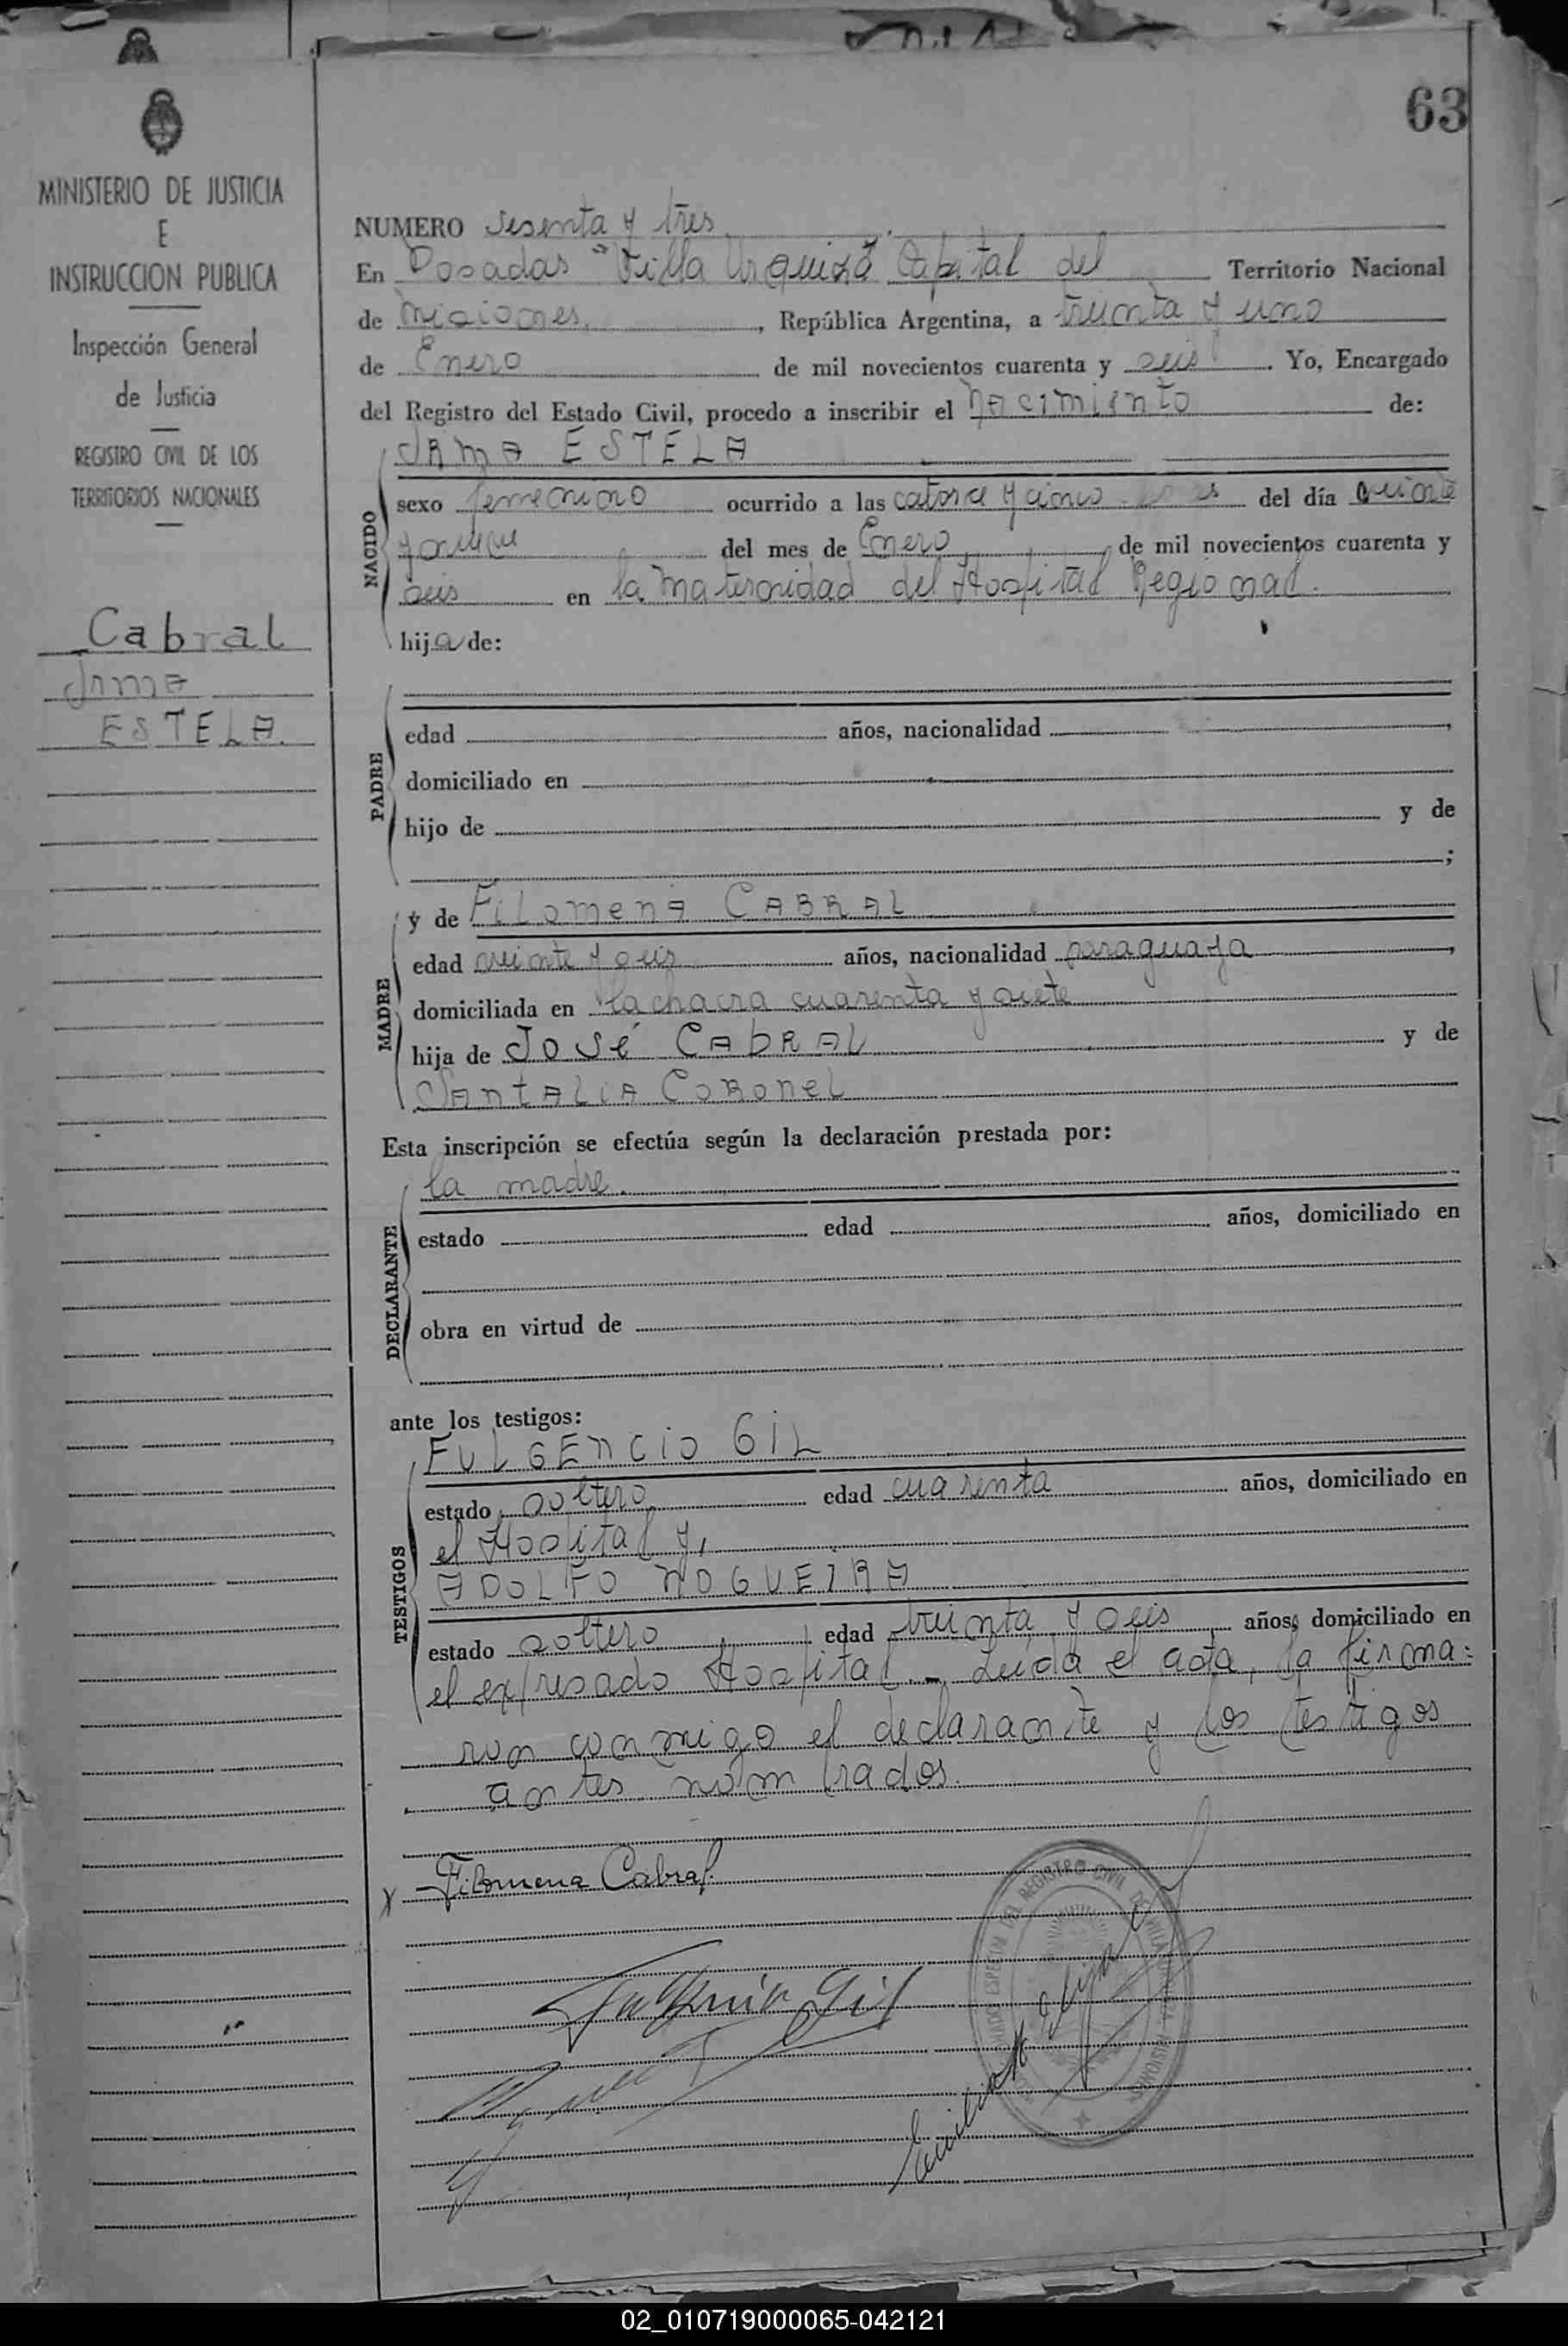 63
MINISTERIO DE JUSTICIA
E
INSTRUCCION PUBLICA
Inspección General
de Justicia
REGISTRO CIVIL DE LOS
TERRITORIOS NACIONALES
Cabral
Irma
ESTELA.
NUMERO sesenta y tres
En Posadas "Villa Urquiza" Capital del Territorio Nacional
de Misiones, República Argentina, a treinta y uno
de Enero de mil novecientos cuarenta y seis. Yo, Encargado
del Registro del Estado Civil, procedo a inscribir el nacimiento de:
IRMA ESTELA
NACIDO
sexo femenino ocurrido a las catorce y cinco del día veinte
y del mes de Enero, de mil novecientos cuarenta y
seis en la Maternidad del Hospital Regional.
hija de:
PADRE
edad años, nacionalidad ,
domiciliado en
hijo de y de
;
MADRE
y de Filomena CABRAL
edad veinte y seis años, nacionalidad paraguaya,
domiciliada en la chacra cuarenta y siete
hija de José CABRAL y de
SANTALIA CORONEL
Esta inscripción se efectúa según la declaración prestada por:
DECLARANTE
la madre.
estado edad años, domiciliado en
obra en virtud de
ante los testigos:
TESTIGOS
FULGENCIO GIL
estado soltero edad cuarenta años, domiciliado en
el Hospital y,
ADOLFO NOGUEIRA
estado soltero edad treinta y seis años, domiciliado en
el expresado Hospital.- Leída el acta, la firma=
ron conmigo el declarante y los testigos
antes nombrados.
x Filomena Cabral
Gil
REGISTRO CIVIL
02_010719000065-042121